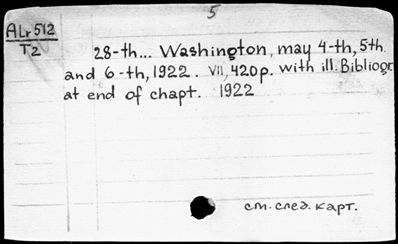 5
ALr 512
T2
28-th... Washington, may 4-th, 5th
and 6-th, 1922. VII, 420 p. with ill. Bibliogr
at end of chapt. 1922
см. след. карт.